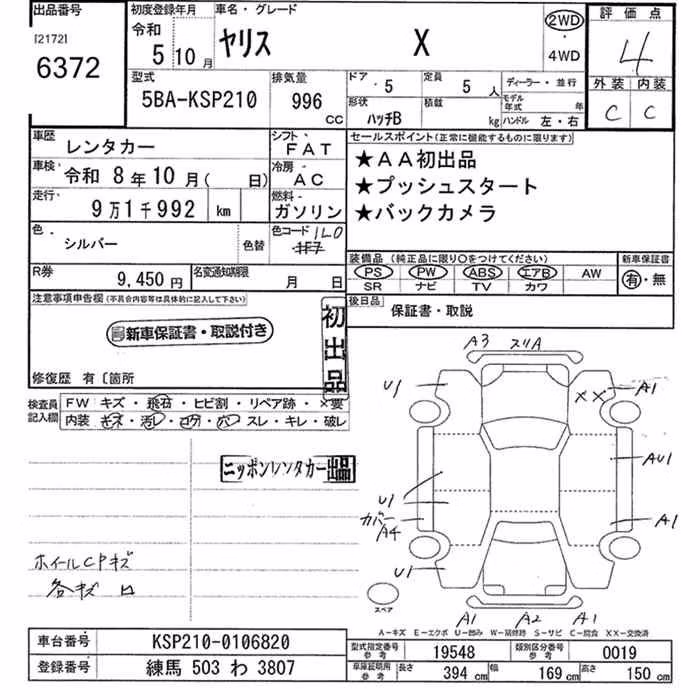 出品番号
[2172]
6372
初度登録年月
令和
5 10月
車名・グレード
ヤリス X
2WD
・
4WD
評価点
4
外装 内装
C C
型式
5BA-KSP210
排気量
996
CC
ドア・5
定員 5人
形状
ハッチB
積載 kg
ディーラー・並行
モデル年式 年
ハンドル 左・右
車歴
レンタカー
シフト
FAT
車検
令和 8年10月( 日)
冷房
AC
走行
9万1千992 km
燃料
ガソリン
色
シルバー
色替
色コード 1L0
セールスポイント(正常に機能するものに限ります)
★AA初出品
★プッシュスタート
★バックカメラ
装備品 (純正品に限り〇をつけてください)
PS PW ABS エアB AW
SR ナビ TV カワ
新車保証書
有・無
R券
9,450円
名変通知期限
月 日
後日品
保証書・取説
注意事項申告欄(不具合内容等は具体的に記入して下さい)
新車保証書・取説付き
初出品
修復歴 有〔箇所
検査員記入欄
FW キズ・飛石・ヒビ割・リペア跡・×要
内装 キズ・汚レ・コゲ・穴・スレ・キレ・破レ
ニッポンレンタカー出品
ホイールCPキズ
各キズ ロ
A3 スリA
U1
XX
A1
AU1
U1
カバー
A4
A1
U1
スペア
A1 A2 A1
A-キズ E-エクボ U-凹み W-補修跡 S-サビ C-腐食 XX-交換済
車台番号
KSP210-0106820
登録番号
練馬 503 わ 3807
型式指定番号
参考
19548
類別区分番号
参考
0019
車庫証明用
参考
長さ 394 cm 幅 169 cm 高さ 150 cm